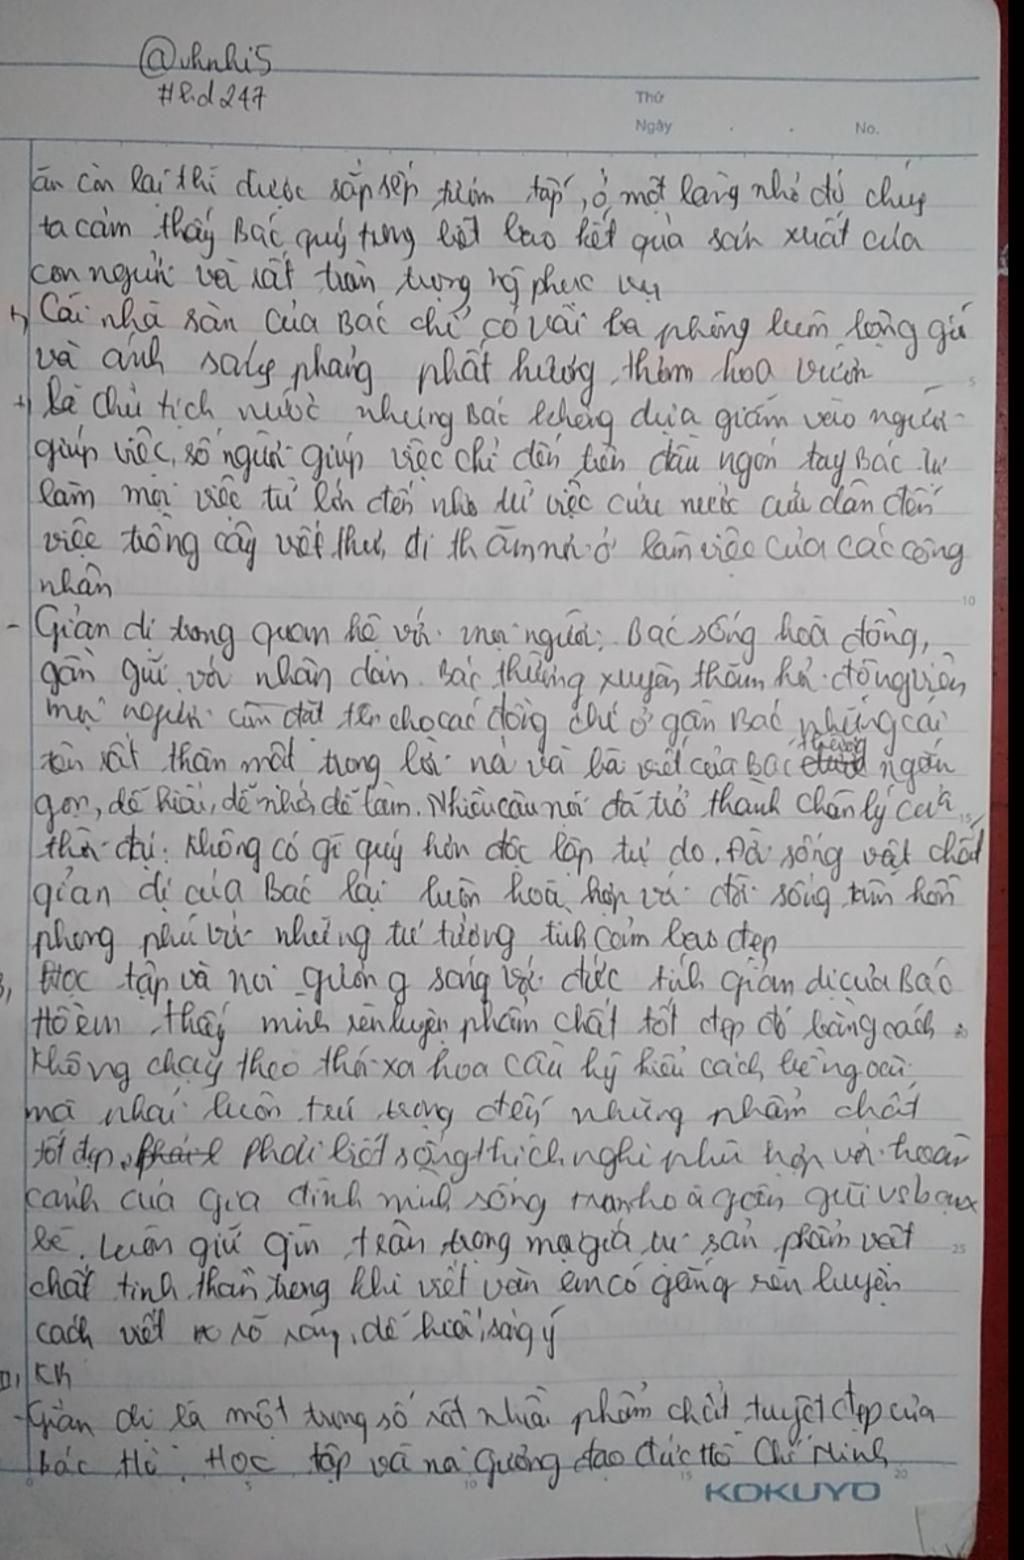 @uhnhi5
#hd247
Thứ
Ngày . . No.
ăn còn lại thì được sắp sếp tươm tất, ở một làng nhỏ đó chúg
ta cảm thấy Bác quý từng biết bao kết quả sản xuất của
con người và rất trân trọng ng phục vụ
+, Cái nhà sàn của Bác chỉ có vài ba phòng luôn lộng gió
và ánh sáng phảng phất hương thơm hoa vườn
+, Là Chủ tịch nước nhưng Bác không dựa giẫm vào người
giúp việc, số người giúp việc chỉ đến trên đầu ngón tay Bác tự
làm mọi việc từ lớn đến nhỏ từ việc cứu nước cứu dân đến
việc trồng cây viết thư, đi thăm nơi ở làm việc của các công
nhân
- Giản dị trong quan hệ với mọi người: Bác sống hoà đồng,
gần gũi với nhân dân. Bác thường xuyên thăm hỏi động viên
mọi người còn đặt tên cho các đồng chí ở gần Bác những cái
tên rất thân mật trong lời nói và bài viết của Bác thường ngắn
gọn, dễ hiểu, dễ nhớ, dễ làm. Nhiều câu nói đã trở thành chân lý của
thời đại: Không có gì quý hơn độc lập tự do. Đời sống vật chất
giản dị của Bác lại luôn hoà hợp với đời sống tâm hồn
phong phú với những tư tưởng tình cảm cao đẹp
3, Học tập và noi gương sáng với đức tính giản dị của Bác
Hồ em thấy mình rèn luyện phẩm chất tốt đẹp đó bằng cách:
Không chạy theo thói xa hoa cầu kỳ kiểu cách bề ngoài
mà phải luôn trú trọng đến những phẩm chất
tốt đẹp. Phải biết sống thích nghi phù hợp với hoàn
cảnh của gia đình mình sống chan hoà gần gũi vs bạn
bè. Luôn giữ gìn trân trọng mọi giá trị sản phẩm vật
chất tinh thần trong khi viết văn em cố gắng rèn luyện
cách viết rõ ràng, dễ hiểu, sáng ý
III, KB
- Giản dị là một trong số rất nhiều phẩm chất tuyệt đẹp của
bác Hồ. Học tập và noi gương đạo đức Hồ Chí Minh
KOKUYO